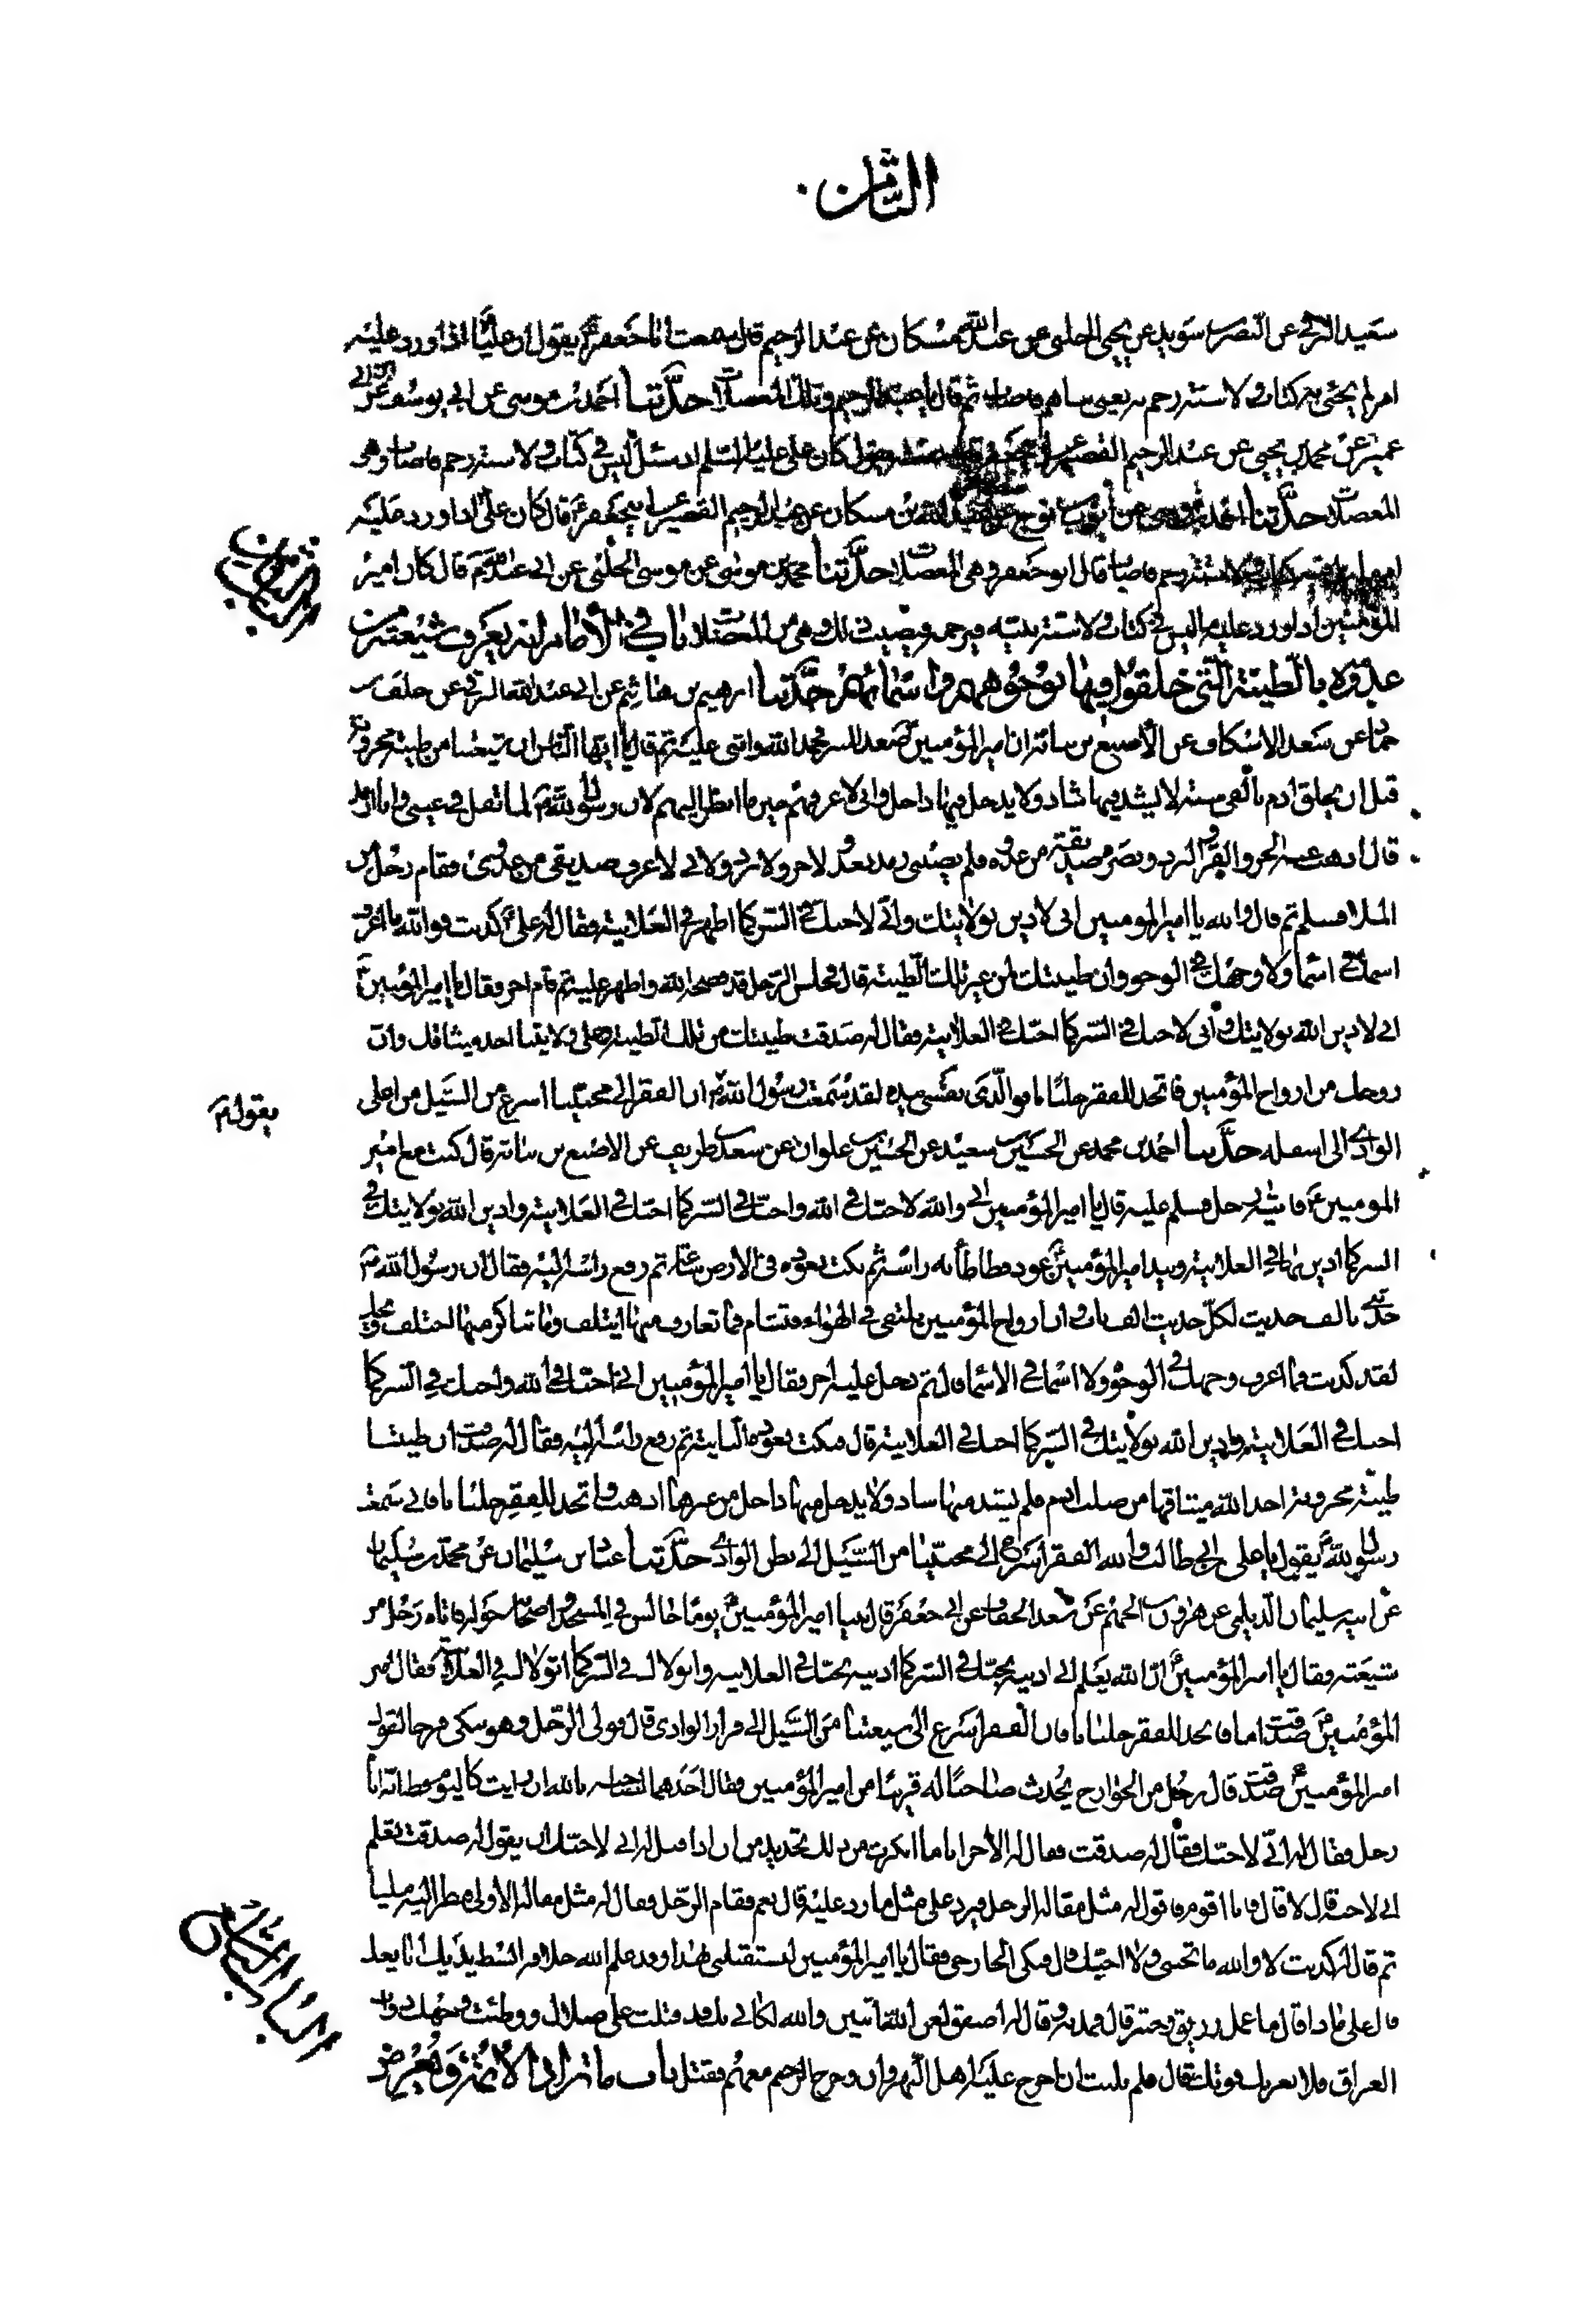 الثامن
سعيد البرقي عن النضر بن سويد عن يحيى الحلبي عن عبد الله بن مسكان عن عبد الرحيم قال سمعت ابا جعفر ع يقول ان عليا ع اذا ورد عليه
امر لم يجئ به كتاب ولا سنة رجم به يعني ساهم فاصاب ثم قال يا عبد الرحيم وتلك المعضلات حدثنا احمد بن موسى عن ايوب بن نوح عن
عمير عن محمد بن يحيى عن عبد الرحيم القصير عن ابي جعفر كان علي عليه السلم اذا سئل ليس في كتاب ولا سنة رجم فاصاب وهي
المعضلات حدثنا احمد بن موسى عن ايوب بن نوح عن عبد الله بن مسكان عن عبد الرحيم القصير عن ابي جعفر ع قال كان علي اذا ورد عليه
رجم فاصاب قال ابو جعفر وهي المعضلات حدثنا محمد بن موسى عن موسى الحلبي عن ابي عبد الله ع قال كان امير
المؤمنين اذا ورد عليه ما ليس في كتاب ولا سنة فيرجم فيصيب ذلك وهي من المعضلات باب في الامام انه يعرف شيعته من
عدوه بالطينة التي خلقوا فيها بوجوههم واسمائهم حدثنا ابرهيم بن هاشم عن ابي عبد الله البرقي عن خلف بن
حماد عن سعد الاسكاف عن الاصبغ بن نباتة ان امير المؤمنين ع صعد المنبر فحمد الله واثنى عليه ثم قال يا ايها الناس ان شيعتنا من طينة مخزونة
قبل ان يخلق ادم بالفي سنة لا يشذ فيها شاذ ولا يدخل فيها داخل واني لاعرفهم حين ما انظر اليهم لان رسول الله ص لما تفل في عيني وانا ارمد
قال اذهب عنه الحر والقر والبرد وبصره صديقه من عدوه فلم يصبني رمد بعد ولا حر ولا برد واني لاعرف صديقي من عدوي فقام رجل من
الملا فسلم ثم قال والله يا امير المومنين اني لادين بولايتك واني لاحبك في السر كما اظهر في العلانية فقال له علي ع كذبت فوالله ما اعرف
اسمك في الاسما ولا وجهك في الوجوه وان طينتك لمن غير تلك الطينة قال فجلس الرجل قد فضحه الله واظهر عليه ثم قام اخر فقال يا امير المؤمنين ع
اني لادين الله بولايتك واني لاحبك في السر كما احبك في العلانية فقال له صدقت طينتك من تلك الطينة وعلى ولايتنا اخذ ميثاقك وان
روحك من ارواح المؤمنين فاتخذ للفقر جلبابا فوالذي نفسي بيده لقد سمعت رسول الله ص ان الفقر الى محبينا اسرع من السيل من اعلى
يقول ص
الوادي الى اسفله حدثنا احمد بن محمد عن الحسين بن سعيد عن الحسين بن علوان عن سعد بن طريف عن الاصبغ بن نباتة قال كنت مع امير
المومنين ع فاتاه رجل فسلم عليه قال يا امير المؤمنين اني والله لاحبك في الله واحبك في السر كما احبك في العلانية وادين الله بولايتك في
السر كما ادين بها في العلانية وبيد امير المؤمنين ع عود فطاطا به راسه ثم نكت بعوده في الارض ساعة ثم رفع راسه اليه فقال ان رسول الله ص
حدثني بالف حديث لكل حديث الف باب وان ارواح المؤمنين تلتقي في الهواء فتشام فما تعارف منها ايتلف وما تناكر منها اختلف وبحك
لقد كذبت فما اعرف وجهك في الوجوه ولا اسمك في الاسما قال ثم دخل عليه اخر فقال يا امير المؤمنين اني احبك في الله واحبك في السر كما
احبك في العلانية وادين الله بولايتك في السر كما احبك في العلانية قال فنكت بعوده الثانية ثم رفع راسه اليه فقال له صدقت ان طينتنا
طينة مخزونة اخذ الله ميثاقها من صلب ادم فلم يشذ منها شاذ ولا يدخل منها داخل من غيرها اذهب واتخذ للفقر جلبابا فاني سمعت
رسول الله ص يقول يا علي بن ابي طالب والله الفقر اسرع الى محبينا من السيل الى بطن الوادي حدثنا عباد بن سليمان عن محمد بن سليمان
عن ابيه سليمان الديلمي عن هرون بن الجهم عن سعد الخفاف عن ابي جعفر ع قال بينا امير المؤمنين ع يوما جالس في المسجد واصحابه حوله فاتاه رجل من
شيعته فقال يا امير المؤمنين ان الله يعلم اني ادينه بحبك في السر كما ادينه بحبك في العلانية واتولاك في السر كما اتولاك في العلانية فقال امير
المؤمنين ع صدقت اما فاتخذ للفقر جلبابا فان الفقر اسرع الى شيعتنا من السيل الى قرار الوادي قال فولى الرجل وهو يبكي فرحا لقول
امير المؤمنين ع صدقت قال رجل من الخوارج يحدث صاحبا له قريبا من امير المؤمنين فقال احدهما لصاحبه تالله ان رايت كاليوم قط انه اتاه
رجل فقال له اني لاحبك فقال له صدقت فقال له الاخر انا ما انكرت من ذلك تجد بدا من ان اذا قيل له اني لاحبك ان يقول له صدقت تعلم
اني لاحبه قال لا قال فانا اقوم فاقول له مثل مقالة الرجل فيرد علي مثل ما رد عليه قال نعم فقام الرجل فقال له مثل مقالة الاول فنظر اليه مليا
ثم قال له كذبت لا والله ما تحبني ولا احبك قال فبكى الخارجي فقال يا امير المؤمنين لتستقبلني بهذا وقد علم الله خلافه ابسط يديك ابايعك
قال علي ما ذا قال ما عمل زريق وحبتر قال فمد يده وقال له اصفق لعن الله الاثنين والله لكاني بك قد قتلت على ضلال ووطئت وجهك دواب
العراق فلا يعرفك قومك قال فلم يلبث ان خرج عليه اهل النهروان وخرج الرجل معهم فقتل باب ما تزاد الائمة ويعرض